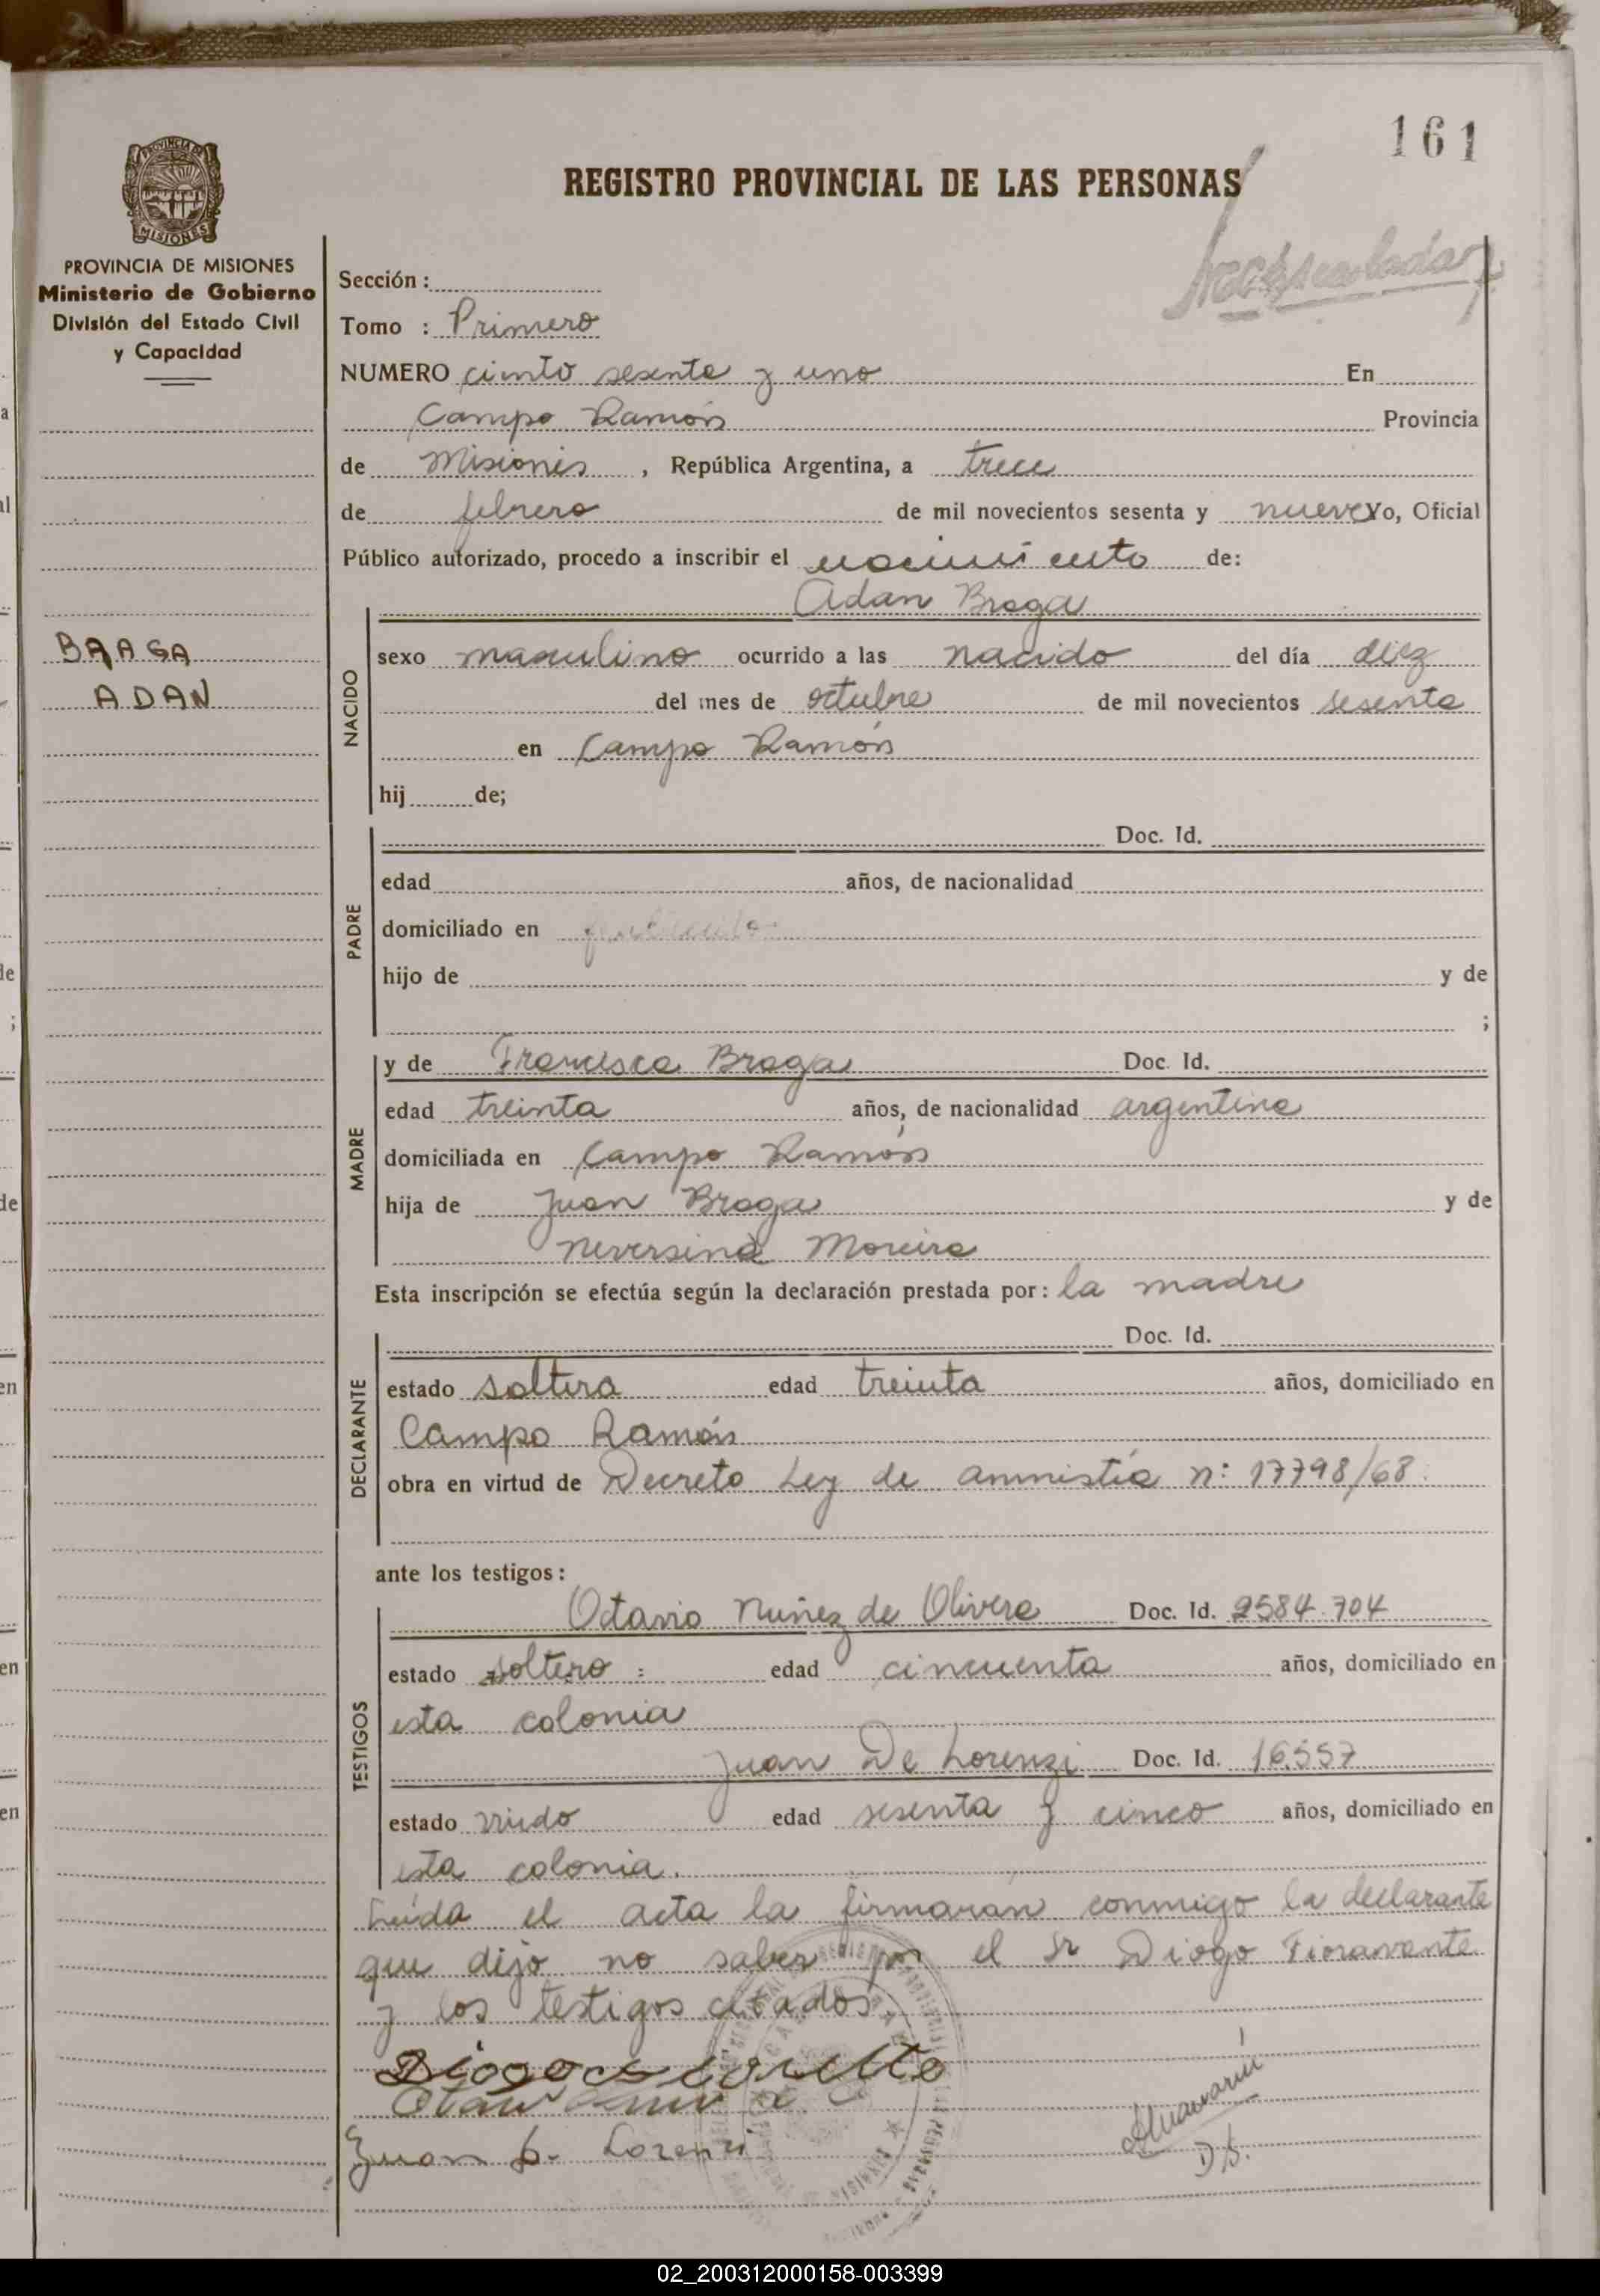 161
REGISTRO PROVINCIAL DE LAS PERSONAS
PROVINCIA DE MISIONES
Ministerio de Gobierno
División del Estado Civil
y Capacidad
BRAGA
ADAN
Sección :
Tomo : Primero
NUMERO ciento sesenta y uno En
Campo Ramón Provincia
de Misiones , República Argentina, a trece
de febrero de mil novecientos sesenta y nueve Yo, Oficial
Público autorizado, procedo a inscribir el nacimiento de:
Adan Braga
NACIDO
sexo masculino ocurrido a las nacido del día diez
del mes de octubre de mil novecientos sesenta
en Campo Ramón
hij de;
PADRE
Doc. Id.
edad años, de nacionalidad
domiciliado en
hijo de y de
;
MADRE
y de Francisca Braga Doc. Id.
edad treinta años, de nacionalidad argentina
domiciliada en Campo Ramón
hija de Juan Braga y de
Neversina Moreira
Esta inscripción se efectúa según la declaración prestada por: la madre
DECLARANTE
Doc. Id.
estado soltera edad treinta años, domiciliado en
Campo Ramón
obra en virtud de Decreto Ley de amnistía n: 17798/68.
ante los testigos:
TESTIGOS
Octavio Nuñez de Olivera Doc. Id. 2584.704
estado soltero : edad cincuenta años, domiciliado en
esta colonia
Juan De Lorenzi Doc. Id. 16.557
estado viudo edad sesenta y cinco años, domiciliado en
esta colonia.
Leída el acta la firmarán conmigo la declarante
que dijo no saber por el Sr Diogo Fioravante
y los testigos citados
Juan D. Lorenzi
02_200312000158-003399